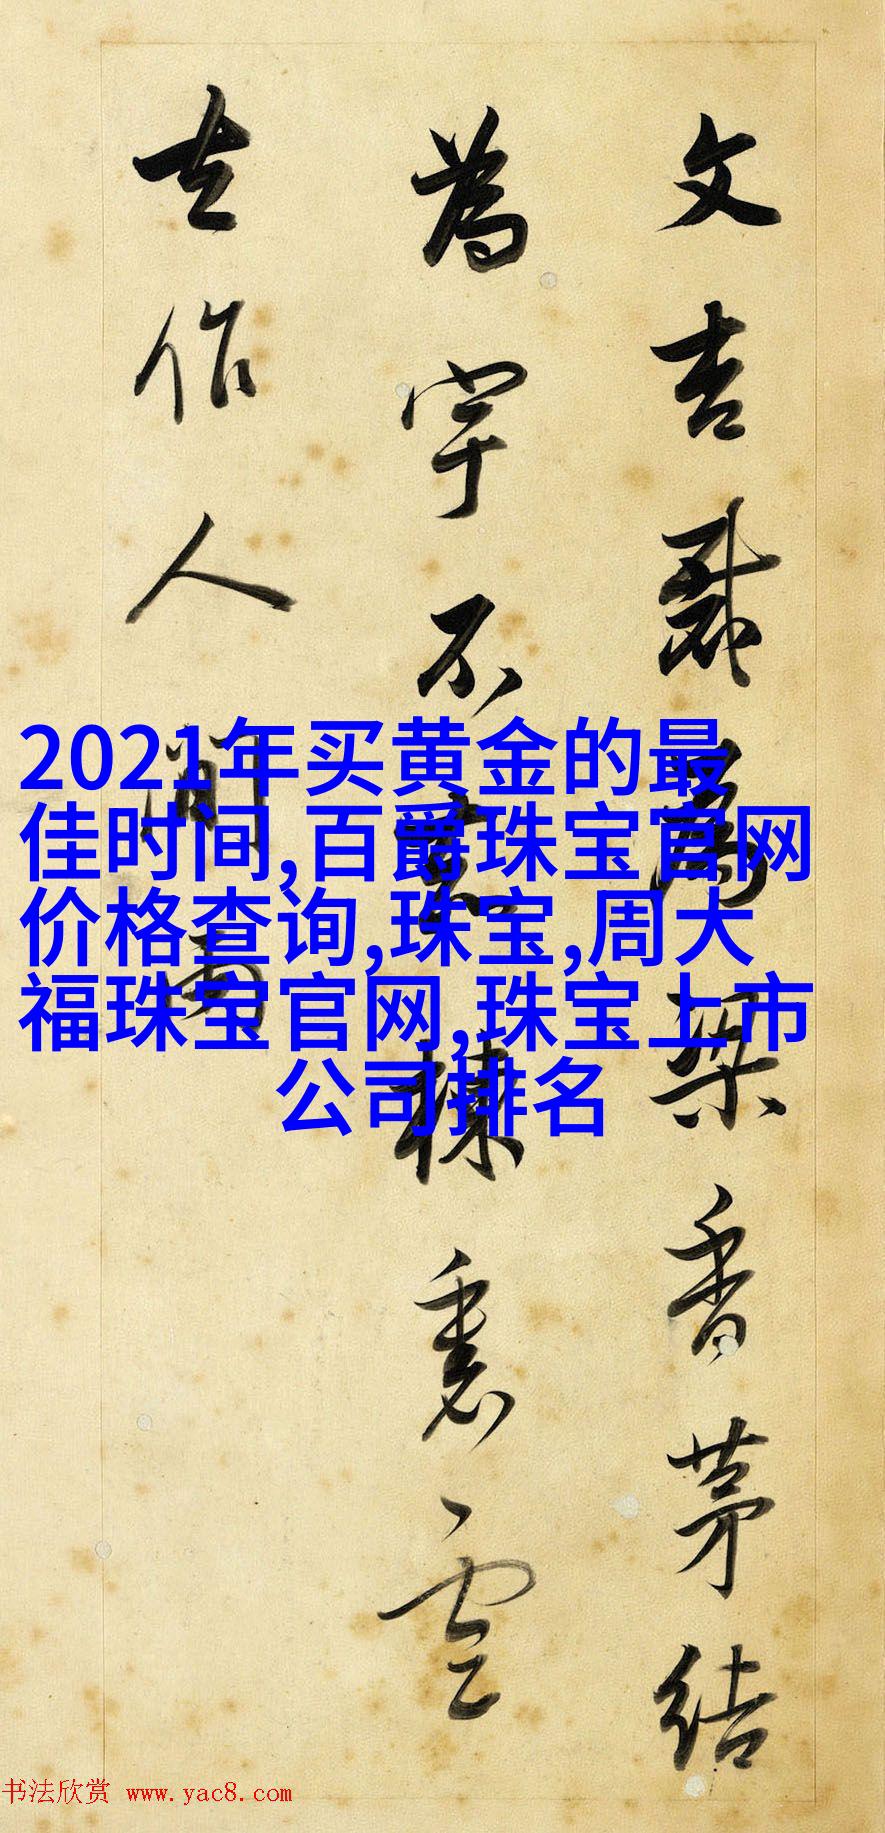 文杏裁為梁香茅結
為宇不知棟裏雲
去作人間雨
2021年买黄金的最
佳时间,百爵珠宝官网
价格查询,珠宝,周大
福珠宝官网,珠宝上市
公司排名
书法欣赏 www.yac8.com